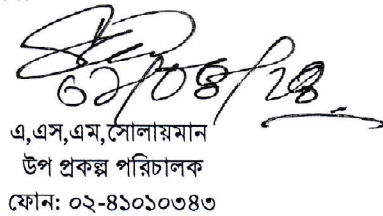 ০১/০৪/২৪
এ,এস,এম,সোলায়মান
উপ প্রকল্প পরিচালক
ফোন: ০২-৪১০১০৩৪৩